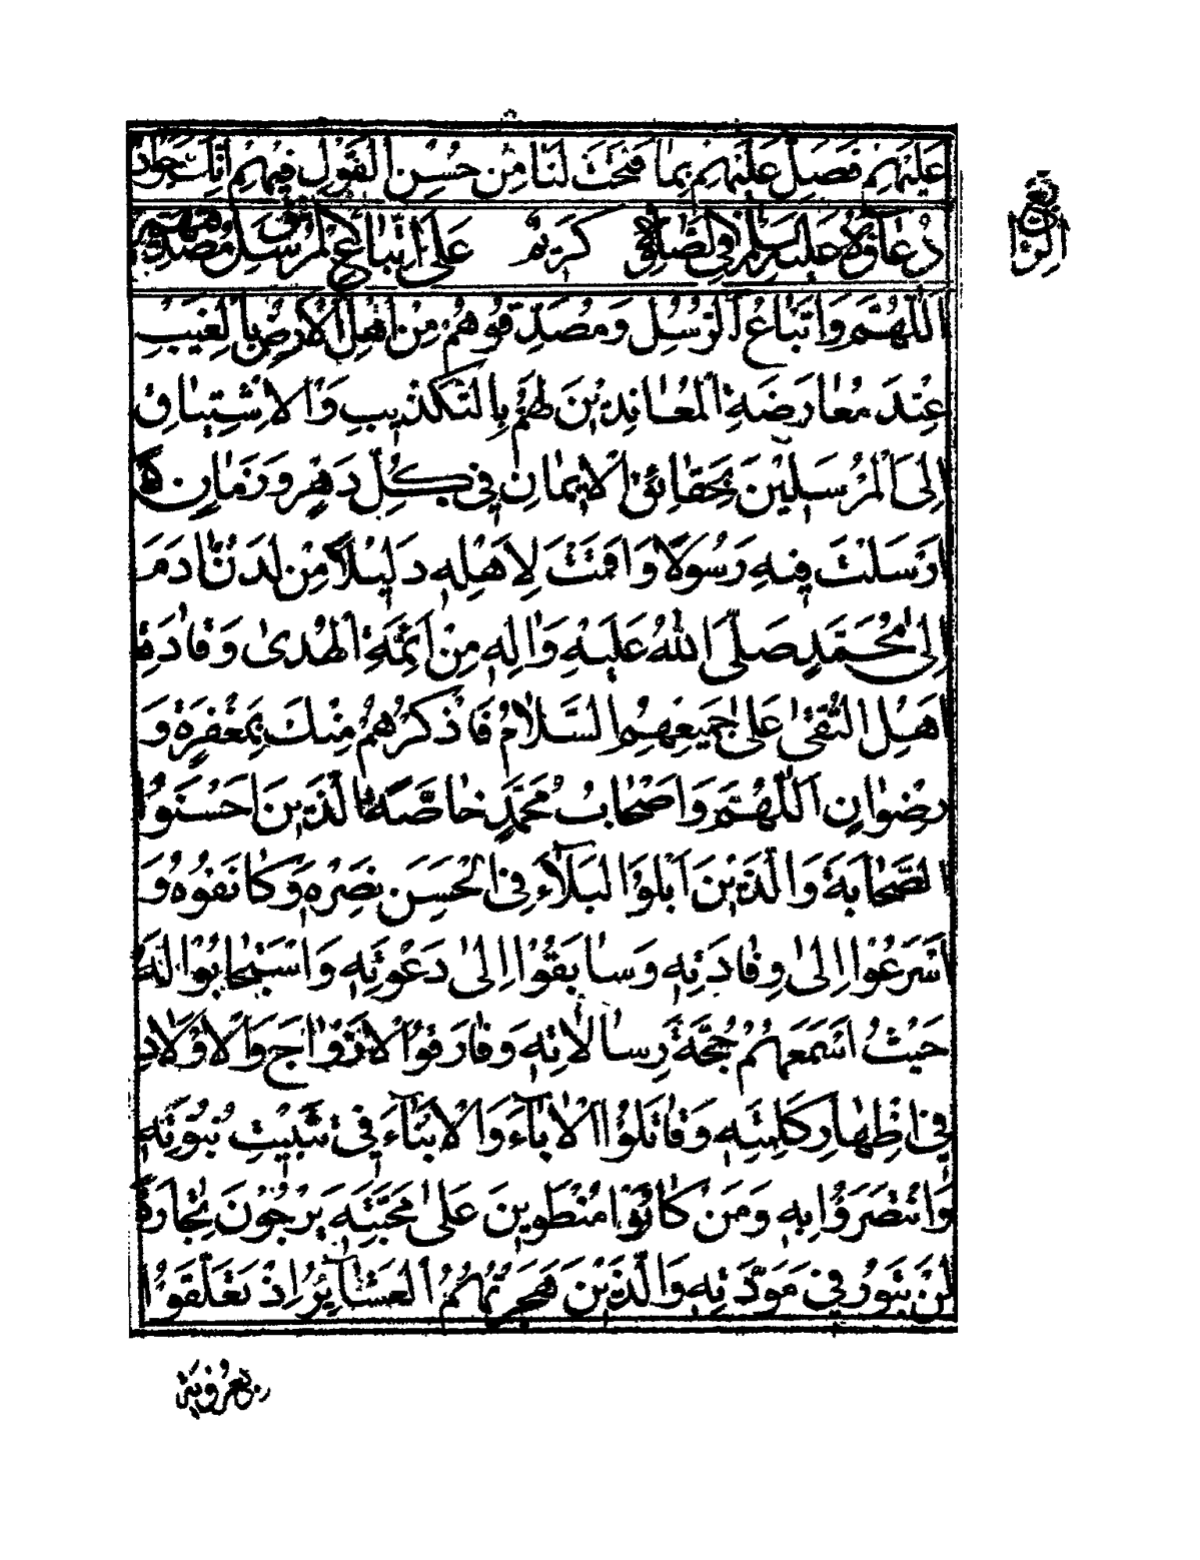 عَلَيْهِمْ فَصَلِّ عَلَيْهِمْ بِمَا فَتَحْتَ لَنَا مِنْ حُسْنِ الْقَوْلِ فِيهِمْ اِنَّكَ جَوَادٌ
دُعَاؤُهُ عَلَيْهِ السَّلَامُ فِي الصَّلٰوةِ كَرِيمٌ عَلٰى اَتْبَاعِ الرُّسُلِ وَ مُصَدِّقِيهِمْ
اَللّٰهُمَّ وَاَتْبَاعُ الرُّسُلِ وَمُصَدِّقُوهُمْ مِنْ اَهْلِ الْاَرْضِ بِالْغَيْبِ
عِنْدَ مُعَارَضَةِ الْمُعَانِدِينَ لَهُمْ بِالتَّكْذِيبِ وَالْاِشْتِيَاقِ
اِلَى الْمُرْسَلِينَ بِحَقَائِقِ الْاِيمَانِ فِي كُلِّ دَهْرٍ وَ زَمَانٍ
اَرْسَلْتَ فِيهِ رَسُولًا وَاَقَمْتَ لِاَهْلِهِ دَلِيلًا مِنْ لَدُنْ اٰدَمَ
اِلٰى مُحَمَّدٍ صَلَّى اللّٰهُ عَلَيْهِ وَاٰلِهِ مِنْ اَئِمَّةِ الْهُدٰى وَ قَادَةِ
اَهْلِ التُّقٰى عَلٰى جَمِيعِهِمُ السَّلَامُ فَاذْكُرْهُمْ مِنْكَ بِمَغْفِرَةٍ وَ
رِضْوَانٍ اَللّٰهُمَّ وَاَصْحَابُ مُحَمَّدٍ خَاصَّةً الَّذِينَ اَحْسَنُوا
الصَّحَابَةَ وَالَّذِينَ اَبْلَوُا الْبَلَاءَ الْحَسَنَ فِي نَصْرِهِ وَكَانَفُوهُ وَ
اَسْرَعُوا اِلٰى وِفَادَتِهِ وَسَابَقُوا اِلٰى دَعْوَتِهِ وَاسْتَجَابُوا لَهُ
حَيْثُ اَسْمَعَهُمْ حُجَّةَ رِسَالَاتِهِ وَفَارَقُوا الْاَزْوَاجَ وَالْاَوْلَادَ
فِي اِظْهَارِ كَلِمَتِهِ وَقَاتَلُوا الْاٰبَاءَ وَالْاَبْنَاءَ فِي تَثْبِيتِ نُبُوَّتِهِ
وَانْتَصَرُوا بِهِ وَمَنْ كَانُوا مُنْطَوِينَ عَلٰى مَحَبَّتِهِ يَرْجُونَ تِجَارَةً
لَنْ تَبُورَ فِي مَوَدَّتِهِ وَالَّذِينَ هَجَرَتْهُمُ الْعَشَائِرُ اِذْ تَعَلَّقُوا
بِعُرْوَتِهِ